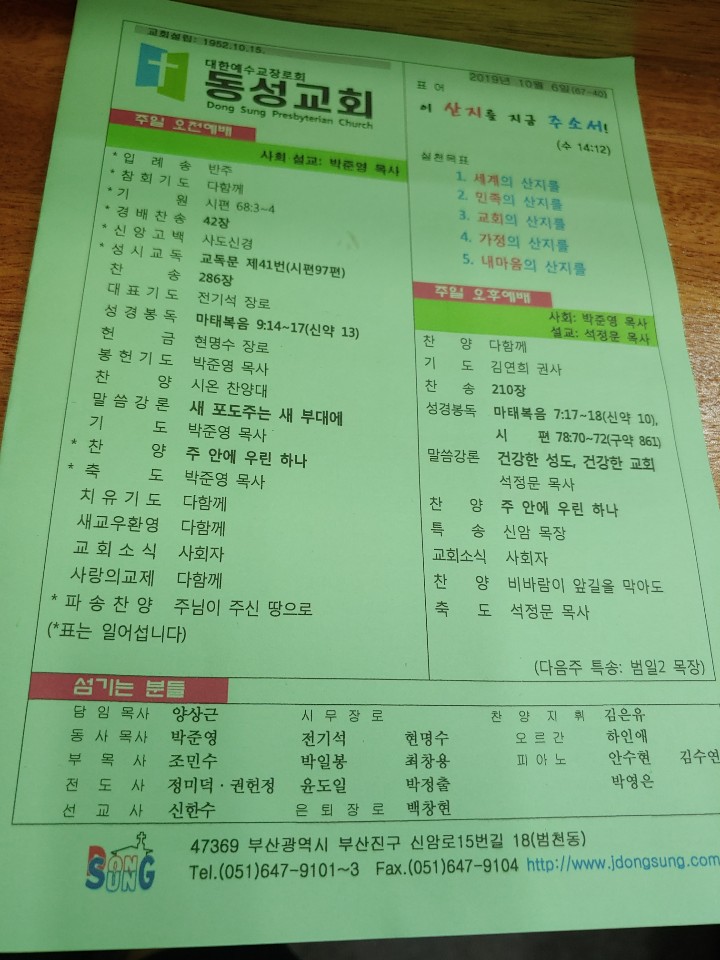 교회설립: 1952.10.15.
대한예수교장로회
동성교회
Dong Sung Presbyterian Church
주일 오전예배
사회 설교: 박준영 목사
* 입 례 송 반주
* 참 회 기 도 다함께
* 기 원 시편 68:3~4
* 경 배 찬 송 42장
* 신 앙 고 백 사도신경
* 성 시 교 독 교독문 제41번(시편97편)
찬 송 286장
대 표 기 도 전기석 장로
성 경 봉 독 마태복음 9:14~17(신약 13)
헌 금 현명수 장로
봉 헌 기 도 박준영 목사
찬 양 시온 찬양대
말 씀 강 론 새 포도주는 새 부대에
기 도 박준영 목사
* 찬 양 주 안에 우린 하나
* 축 도 박준영 목사
치 유 기 도 다함께
새교우환영 다함께
교 회 소 식 사회자
사랑의교제 다함께
* 파 송 찬 양 주님이 주신 땅으로
(*표는 일어섭니다)
2019년 10월 6일(67-40)
표 어
이 산지를 지금 주소서!
(수 14:12)
실천목표
1. 세계의 산지를
2. 민족의 산지를
3. 교회의 산지를
4. 가정의 산지를
5. 내마음의 산지를
주일 오후예배
사회: 박준영 목사
설교: 석정문 목사
찬 양 다함께
기 도 김연희 권사
찬 송 210장
성경봉독 마태복음 7:17~18(신약 10),
시 편 78:70~72(구약 861)
말씀강론 건강한 성도, 건강한 교회
석정문 목사
찬 양 주 안에 우린 하나
특 송 신암 목장
교회소식 사회자
찬 양 비바람이 앞길을 막아도
축 도 석정문 목사
(다음주 특송: 범일2 목장)
섬기는 분들
담 임 목 사 양상근 시 무 장 로 찬 양 지 휘 김은유
동 사 목 사 박준영 전기석 현명수 오 르 간 하인애
부 목 사 조민수 박일봉 최창용 피 아 노 안수현 김수연
전 도 사 정미덕 · 권헌정 윤도일 박정출 박영은
선 교 사 신한수 은 퇴 장 로 백창현
DONG
SUNG
47369 부산광역시 부산진구 신암로15번길 18(범천동)
Tel.(051)647-9101~3 Fax.(051)647-9104 http://www.jdongsung.com